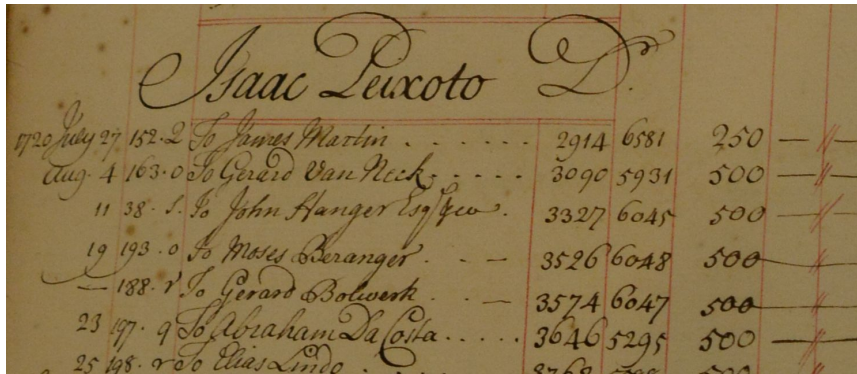 Isaac Peixoto D.r
1720 July 27 152.2 To James Martin . . . . . . . 2914 6581 250 — // —
Aug. 4 163.0 To Gerard Van Neck . . . . . 3090 5931 500 — // —
11 38. s. To John Hanger Esq.r 3327 6045 500 — // —
19 193.0 To Moses Beranger . . — 3526 6048 500 — //
— 188. r To Gerard Bolwerk . . — 3574 6047 500 — //
23 197. q To Abraham Da Costa . . . . . 3646 5295 500 — //
25 198. r To Elias Lindo . . . . . 3768